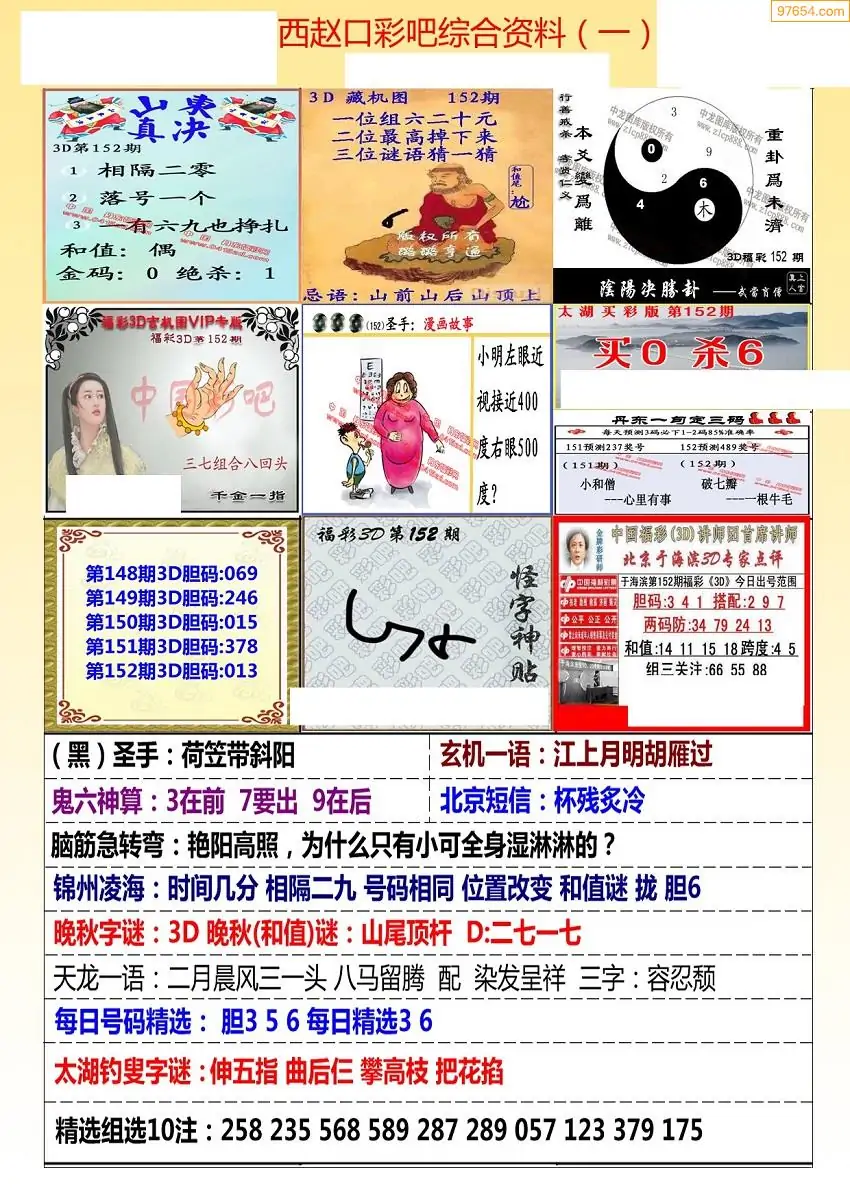 97654.com
西赵口彩吧综合资料（一）
山东
真决
3D第152期
1 相隔二零
2 落号一个
3 有六九也挣扎
和值： 偶
金码： 0 绝杀： 1
3D 藏机图 152期
一位组六二十元
二位最高掉下来
三位谜语猜一猜
和值尾：尬
版权所有
璐璐亨通
忌语：山前山后山顶上
行善戒杀
本爻變爲離
重卦爲未濟
3
0
9
2
6
4
木
中龙图库版权所有
www.zlcp888.com
3D福彩 152 期
陰陽決勝卦 ——武當肖僧
福彩3D玄机图VIP专版
福彩3D第152期
三七组合八回头
千金一指
(152)圣手：漫画故事
小明左眼近
视接近400
度右眼500
度？
太湖买彩版 第152期
买0 杀6
丹东一句定三码
每天预测3码必下1-2码85%准确率
151预测237奖号 152预测489奖号
(151期) (152期)
小和僧 破七瓣
---心里有事 ----一根牛毛
第148期3D胆码:069
第149期3D胆码:246
第150期3D胆码:015
第151期3D胆码:378
第152期3D胆码:013
福彩3D第152期
怪字神贴
金牌彩研师
中国福彩(3D)讲师团首席讲师
北京于海滨3D专家点评
中国福利彩票
公平 公正 公开
于海滨第152期福彩《3D》今日出号范围
胆码:3 4 1 搭配:2 9 7
两码防:34 79 24 13
和值:14 11 15 18 跨度:4 5
组三关注:66 55 88
(黑)圣手：荷笠带斜阳
玄机一语：江上月明胡雁过
鬼六神算：3在前 7要出 9在后
北京短信：杯残炙冷
脑筋急转弯：艳阳高照，为什么只有小可全身湿淋淋的？
锦州凌海：时间几分 相隔二九 号码相同 位置改变 和值谜 拢 胆6
晚秋字谜：3D 晚秋(和值)谜：山尾顶杆 D:二七一七
天龙一语：二月晨风三一头 八马留腾 配 染发呈祥 三字：容忍颓
每日号码精选： 胆3 5 6 每日精选3 6
太湖钓叟字谜：伸五指 曲后仨 攀高枝 把花掐
精选组选10注：258 235 568 589 287 289 057 123 379 175